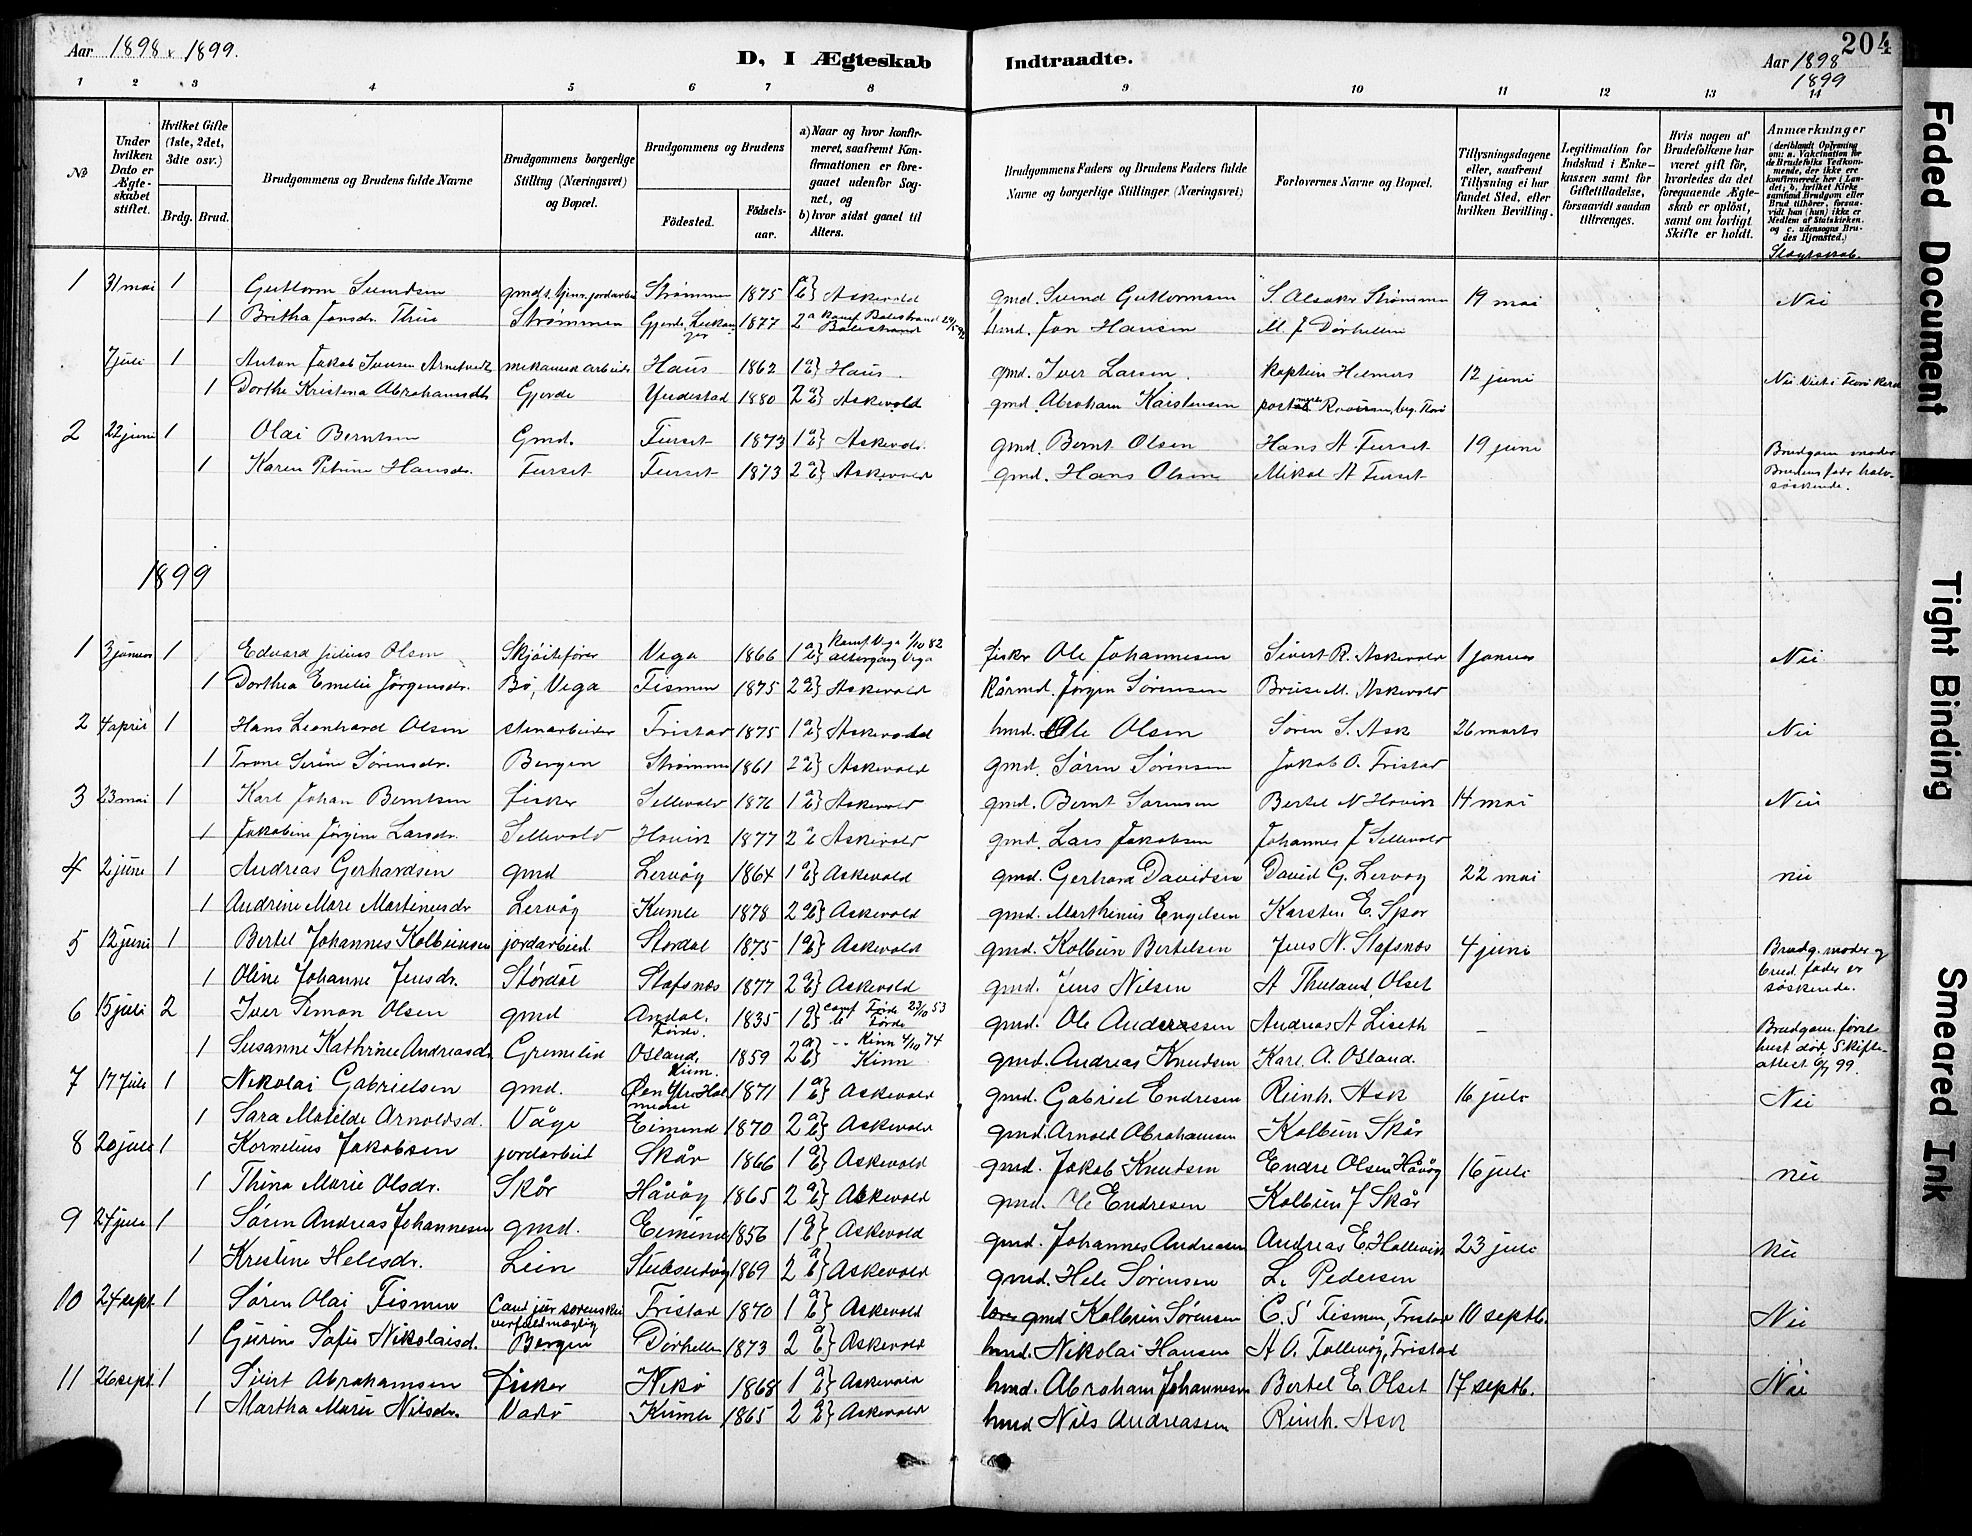 Aar 1898 & 1899.
D, I Ægteskab Indtraadte.
Aar 1898
1899
204
1 2 3 4 5 6 7 8 9 10 11 12 13 14
№
Under hvilken Dato er Ægteskabet stiftet.
Hvilket Gifte (1ste, 2det, 3die osv.)
Brdg. Brud.
Brudgommens og Brudens fulde Navne
Brudgommens borgerlige Stilling (Næringsvei) og Bopæl.
Brudgommens og Brudens
Fødested.
Fødselsaar.
a) Naar og hvor konfirmeret, saafremt Konfirmationen er foregaaet udenfor Sognet, og
b) hvor sidst gaaet til Alters.
Brudgommens Faders og Brudens Faders fulde Navne og borgerlige Stillinger (Næringsvei)
Forlovernes Navne og Bopæl.
Tillysningsdagene eller, saafremt Tillysning ei har fundet Sted, efter hvilken Bevilling.
Legitimation for Indskud i Enkekassen samt for Giftetilladelse, forsaavidt saadan tiltrænges.
Hvis nogen af Brudefolkene har været gift før, hvorledes da det foregaaende Ægteskab er opløst, samt om lovligt Skifte er holdt.
Anmærkninger (deriblandt Oplysning om: a. Vakcination for de Brudefolks Vedkommende, der ikke ere konfirmerede her i Landet; b. hvilket Kirkesamfund Brudgom eller Brud tilhører, forsaavidt han (hun) ikke er Medlem af Statskirken, og c. udensogns Brudes Hjemsted.)
Slægtskab.
1 31 mai 1 Guttorm Sveindsen gmds. tjener, jordarbei Strømmen 1875 1 a b} Askevold gmd. Svend Guttormsen S. Alsaker Strømmen 19 mai Nei
1 Britha Jonsdr. Thue Strømmen Gjerde, Leikanger 1877 2 a konf. Balestrand b Balestrand hmd. Jon Hansen M. J. Dørhellen
7 juli 1 Anton Jakob Iversen Arnetvedt mekanisk arbeider Haus 1862 1 a b} Haus gmd. Iver Larsen. kaptein Helmers 12 juni Nei Viet i Florø kirke
1 Dorthe Kristina Abrahamsdtr Gjerde Yndestad 1880 2 a b} Askevold gmd. Abraham Karstensen
2 22 juni 1 Olai Berntsen Gmd. Furset 1873 1 a b} Askevold. gmd. Bernt Olsen Hans A Furset 19 juni Brudgom. moder
1 Karen Petrine Hansdr. Furset Furset 1873 2 a b} Askevold gmd. Hans Olsen Mikal A Furset Brudens fader halvsøskende.
1899
1 3 januar 1 Edvard Julius Olsen Skjøitefører Vega 1866 1 a b} konf. Vega 1/10 82 altergang Vega fisker Ole Johannesen Sivert R. Askevold 1 januar Nei
1 Dorthea Emelie Jörgensdr. Bö, Vega Tismen 1875 2 a b} Askevold kårmd. Jørgen Sørensen M. Askevold
2 4 april 1 Hans Leonhard Olsen stenarbeider Fristad 1875 1 a b} Askevold hmd. Ole Olsen Søren S. Ask 26 marts Nei
1 Trone Serine Sørensdr. Bergen Strømmen 1861 2 a b} Askevold gmd. Søren Sørensen Jakob O. Fristad
3 23 mai 1 Karl Johan Berntsen fisker Sellevold 1876 1 a b} Askevold gmd. Bernt Sørensen Bertel N Hovik 14 mai Nei
1 Jakobine Jørgine Larsdr. Sellevold Hovik 1877 2 a Askevold gmd. Lars Jakobsen Johannes J Sellevold
4 2 juni 1 Andreas Gerhardsen gmd Lervåg 1864 1 a b} Askevold gmd. Gerhard Davidsen David G. Lervog 22 mai nei
1 Andrine Mare Martinusdr Lervåg Kumle 1878 2 a b} Askevold gmd. Marthinus Engelsen Karsten E. Spor
5 12 juni 1 Bertel Johannes Kolbeinsen jordarbeid. Stordal 1875 1 a b} Askevold gmd. Kolbein Bertelsen Jens N. Stafsnæs 4 juni Brudg. moder og
1 Oline Johanne Jensdr. Stördal Stafsnæs 1877 2 a b} Askevold gmd. Jens Nilsen A Thuland, Olset brud. fader er søskende.
6 15 juli 2 Iver Simon Olsen gmd Andal, Førde 1835 1 a b} conf Førde 23/10 53 Førde gmd. Ole Anderssen Andreas A Liseth - Brudgom. første
1 Susanne Kathrine Andreasdr Gremelid Osland, Kinn. 1859 2 a b} Kinn 4/10 74 Kinn gmd. Andreas Knudsen Karl. A. Osland. hust død. Skifteattest 6/7 99.
7 17 Juli 1 Nikolai Gabrielsen gmd. Øen Ytre Holmedal 1871 1 a b} Askevold gmd. Gabriel Endresen Reinh. Ask 16 juli Nei
1 Sara Matilde Arnoldsd. Våge Eimend 1870 2 a b} Askevold gmd. Arnold Abrahamsen Kolbein Skår
8 20 juli 1 Kornelius Jakobsen jordarbeid Skår 1866 1 a b} Askevold gmd. Jakob Knudsen Endre Olsen Håvåg 16 juli nei
1 Thina Marie Olsdr. Skår Håvåg 1865 2 a b} Askevold gmd. Ole Endresen Kolbein J Skår
9 27 juli 1 Søren Andreas Johannesen gmd. Eimend 1856 1 a b} Askevold gmd. Johannes Andreasen Andreas E. Hellevik 23 juli nei
1 Kristine Helesdr. Leen Stubseidvåg 1869 2 a b} Askevold gmd. Hele Sørensen L. Pedersen
10 24 sept. 1 Søren Olai Tismen Cand jur sorenskriverfuldmægtig Fristad 1870 1 a b} Askevold gmd Kolbein Sørensen C. S Tismen, Fristad 10 septb. Nei
1 Gurine Sofie Nikolaisd. Bergen Dørhellen 1873 2 a b} Askevold hmd. Nikolai Hansen A O. Tollevåg, Fristad
11 26 sept 1 Sivert Abrahamsen Fisker Nekø 1868 1 a b} Askevold hmd. Abraham Johannesen Bertel E. Olset 17 septb. Nei
1 Martha Marie Nilsdr. Værø Kumle 1865 2 a b} Askevold hmd Nils Andreassen Reinh. Ask
Faded Document
Tight Binding
Smeared Ink